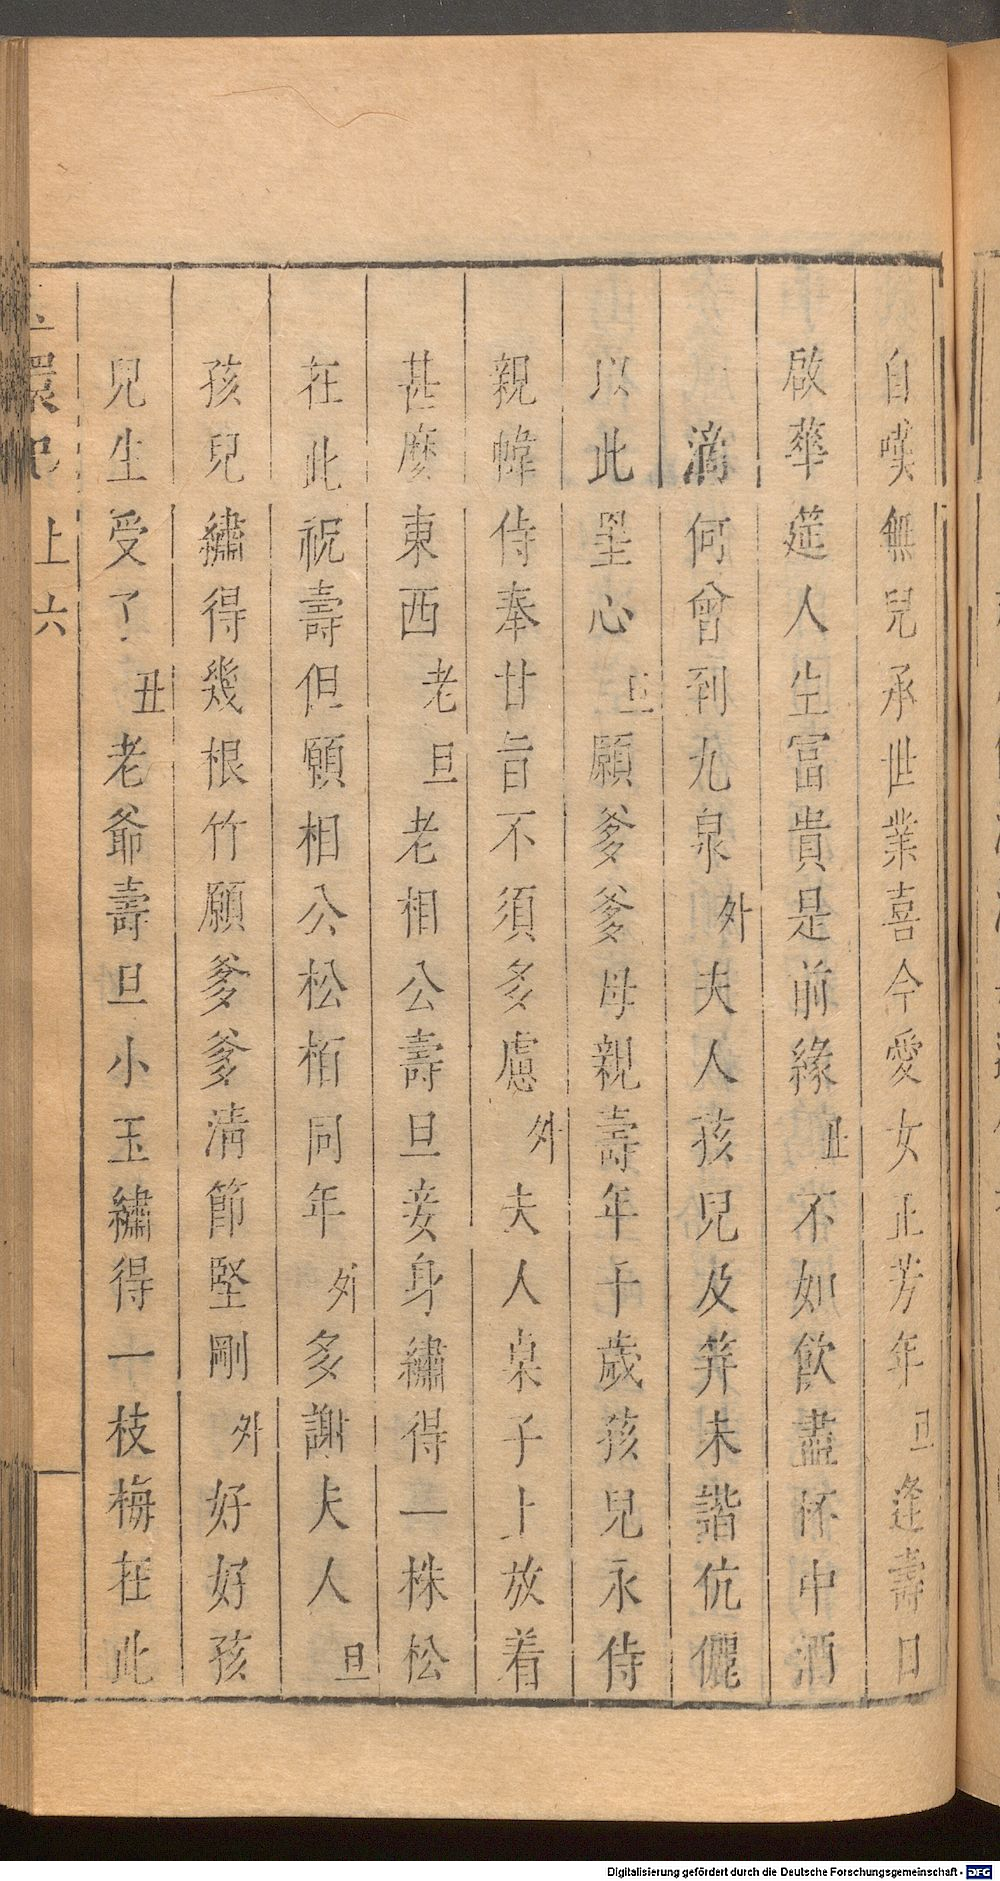 自嘆無兒承世業喜今愛女正芳年旦逢壽日
啟華筵人生富貴是前緣丑不如飲盡杯中酒
滴何曾到九泉外夫人孩兒及笄未諧伉儷
以此罣心旦願爹爹母親壽年千歲孩兒永侍
親幃侍奉甘旨不須多慮外夫人桌子上放着
甚麽東西老旦老相公壽旦妾身繡得一株松
在此祝壽但願相公松栢同年外多謝夫人旦
孩兒繡得幾根竹願爹爹清節堅剛外好好孩
兒生受了丑老爺壽旦小玉繡得一枝梅在此
環記 上 六
Digitalisierung gefördert durch die Deutsche Forschungsgemeinschaft - DFG